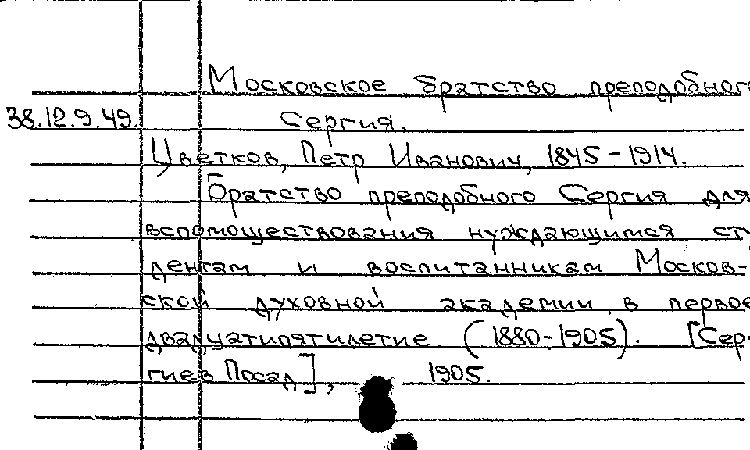 Московское братство преподобног
38.12.9.49. Сергия.
Цветков, Петр Иванович, 1845-1914.
Братство преподобного Сергия для
вспомоществования нуждающимся сту
дентам и воспитанникам Москов-
ской духовной академии в первое
двадцатипятилетие (1880-1905). [Сер-
гиев Посад], 1905.